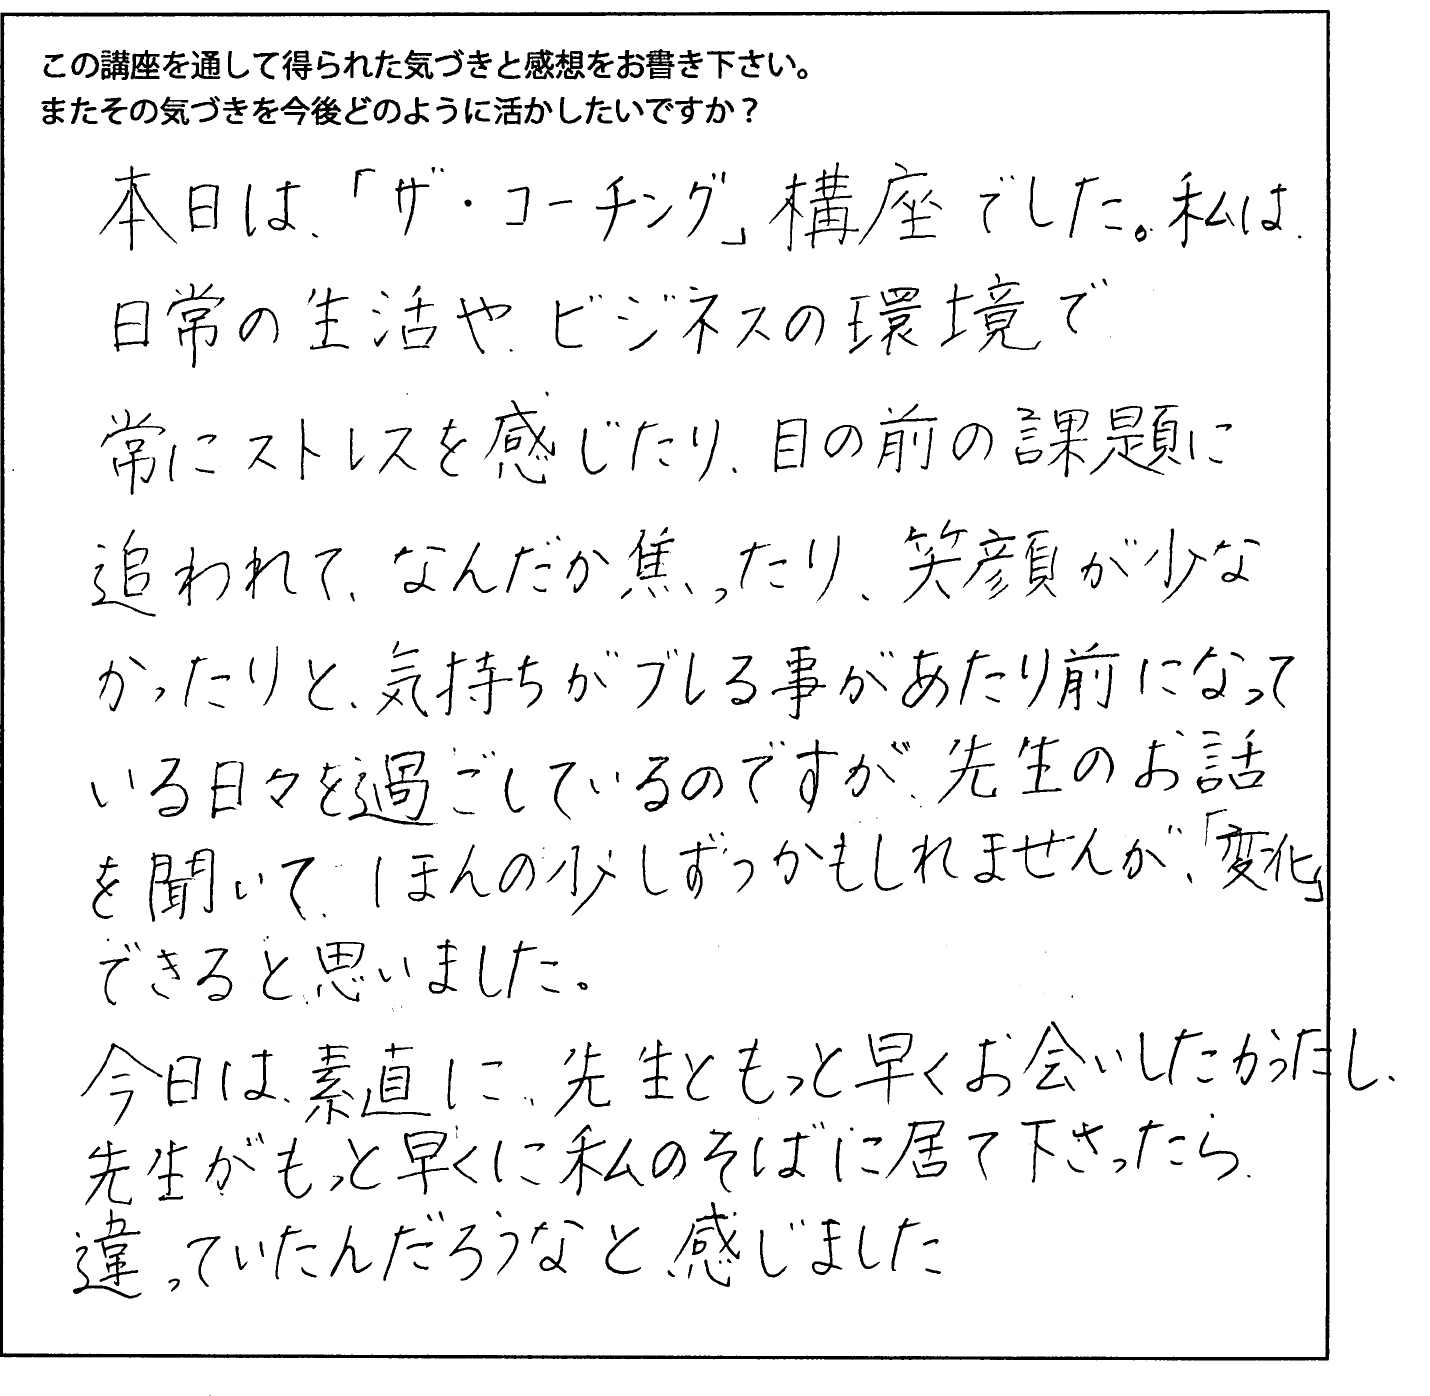 この講座を通して得られた気づきと感想をお書き下さい。
またその気づきを今後どのように活かしたいですか？
本日は、「ザ・コーチング」構座でした。私は、
日常の生活や、ビジネスの環境で
常にストレスを感じたり、目の前の課題に
追われて、なんだか焦ったり、笑顔が少な
かったりと、気持ちがブレる事があたり前になって
いる日々を過ごしているのですが、先生のお話
を聞いて、ほんの少しずつかもしれませんが、「変化」
できると思いました。
今日は、素直に、先生ともっと早くお会いしたかったし、
先生がもっと早くに私のそばに居て下さったら、
違っていたんだろうなと、感じました